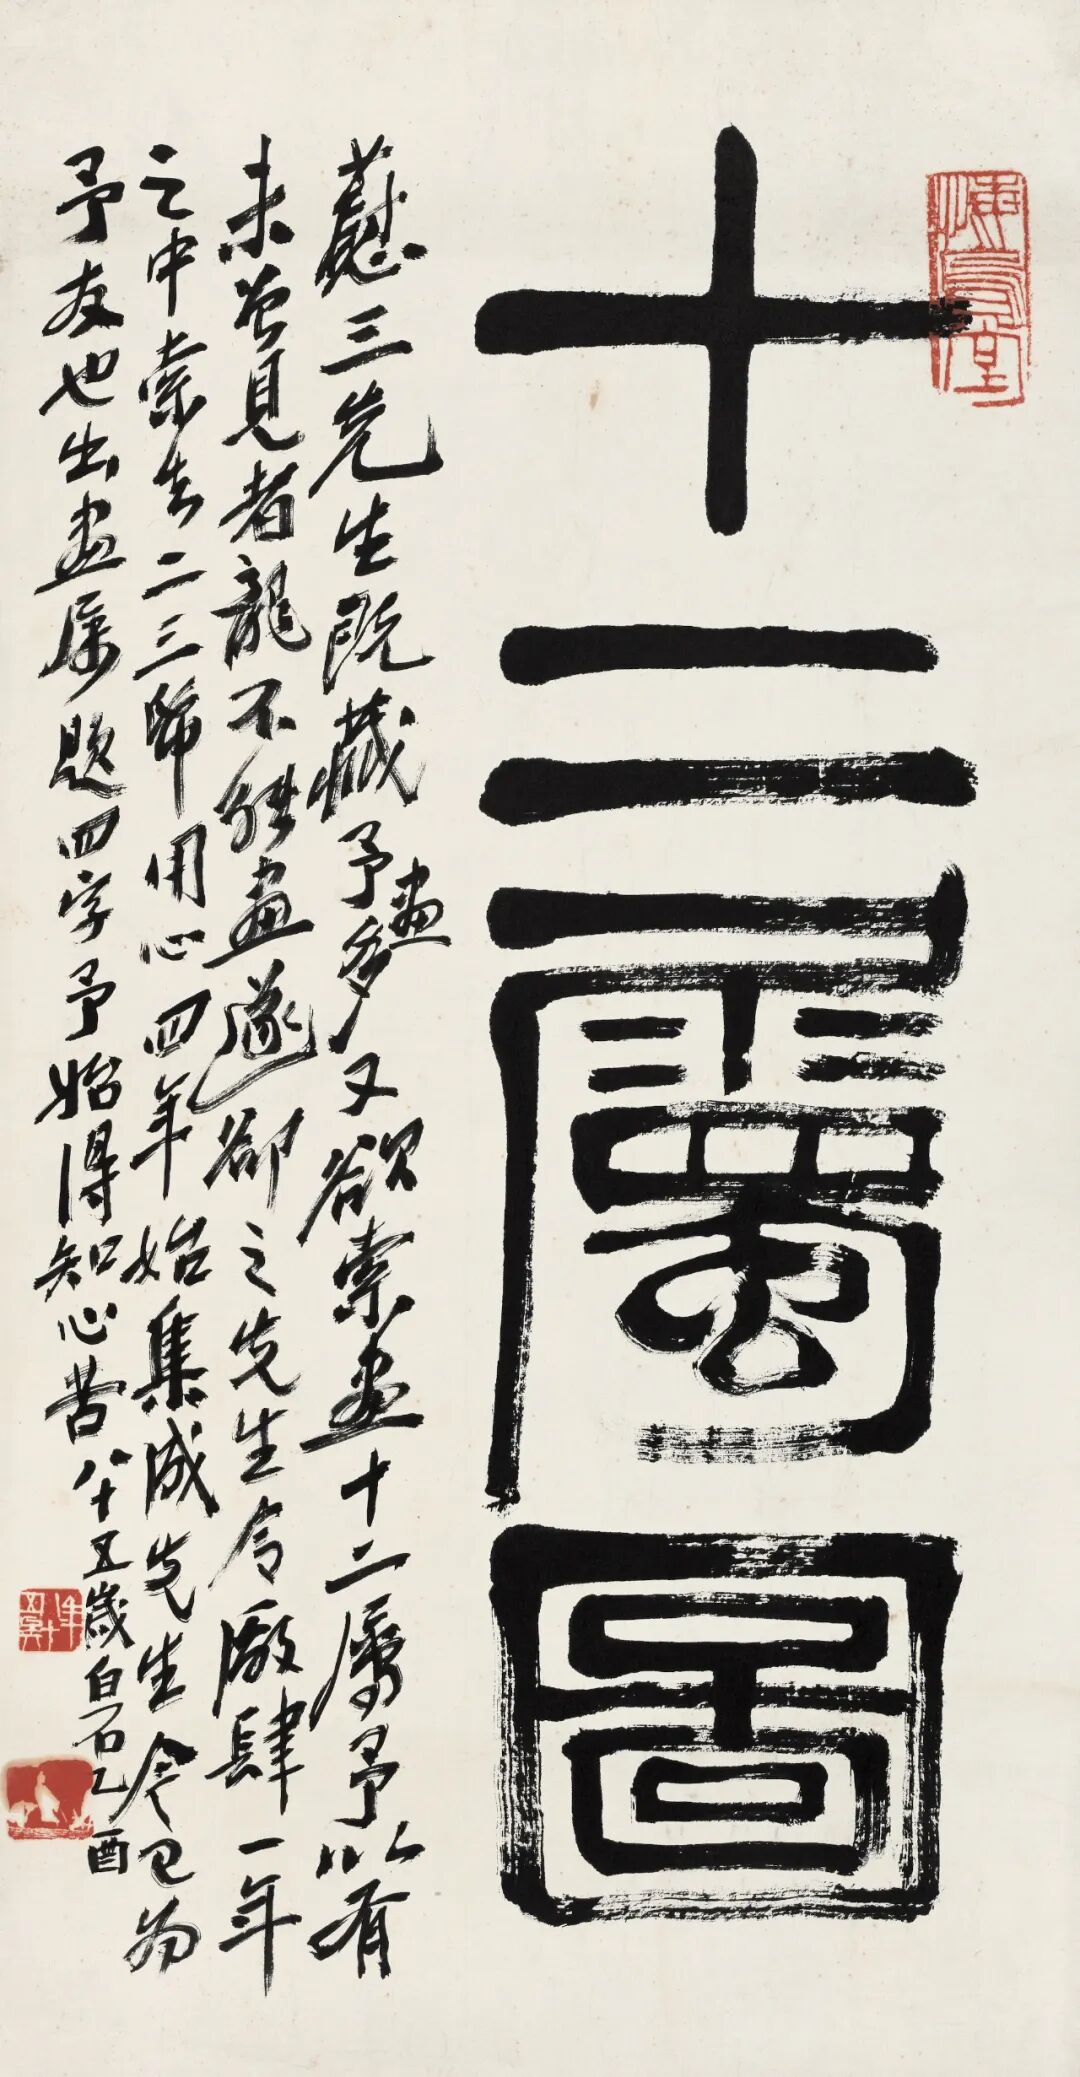 十二屬圖
慰三先生既藏予畫多又欲索畫十二屬予以有
未曾見者龍不能畫遂卻之先生令廠肆一年
之中索去二三幅用心四年始集成先生今已为
予友也出畫属題四字予始得知心苦八十五歲白石乙酉
悔烏堂
年八十五矣